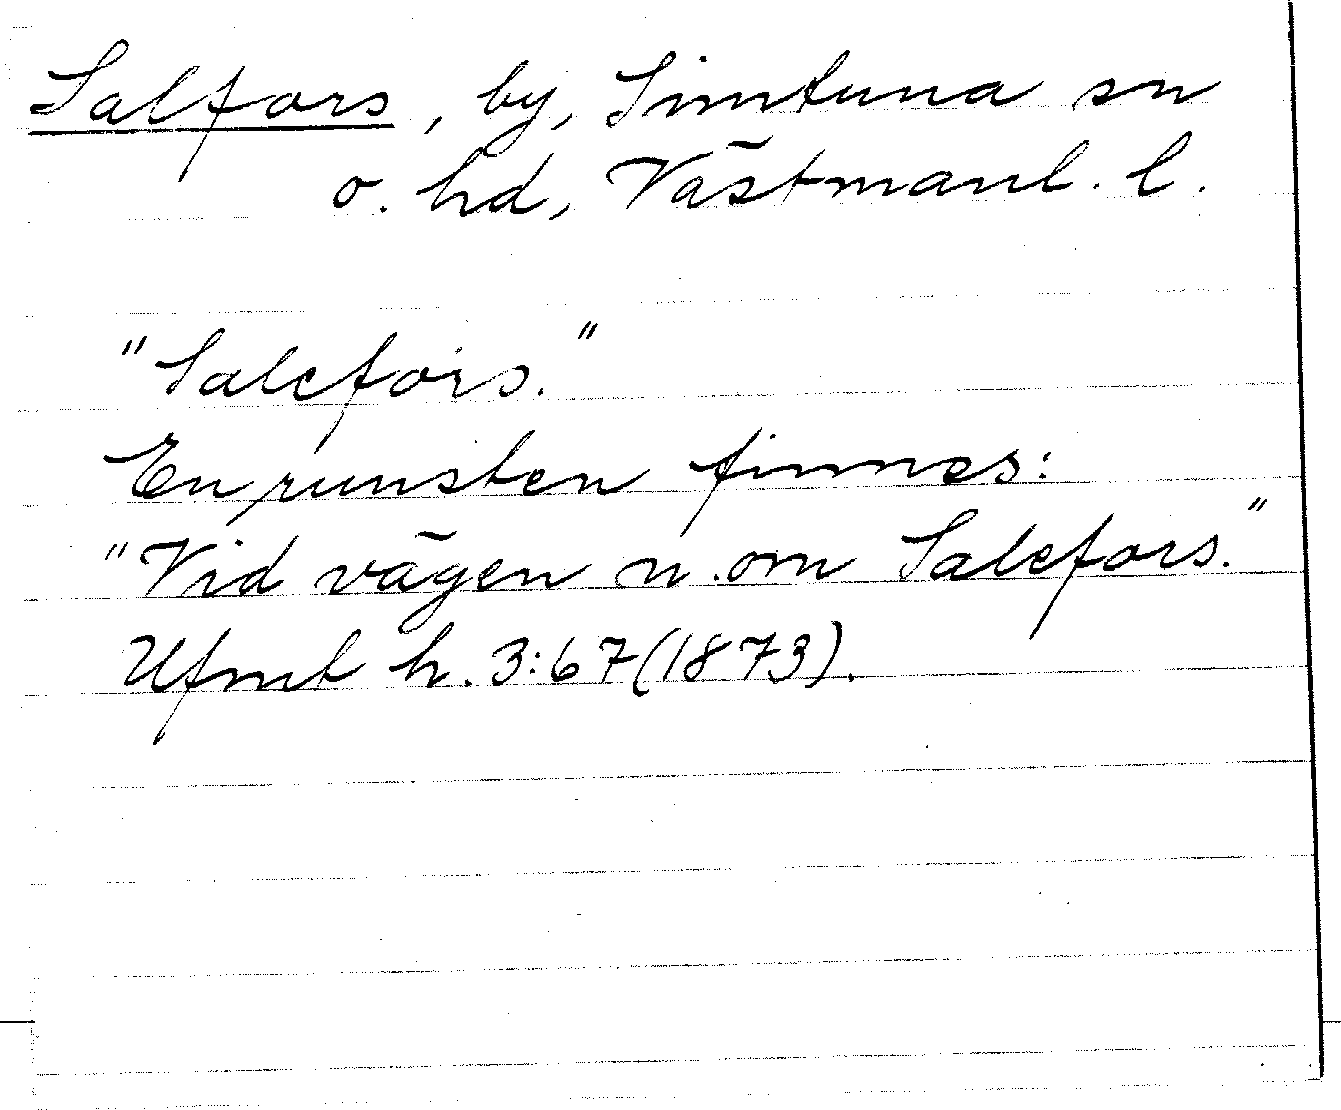 Salfors, by, Simtuna sn
o. hd, Västmanl. l.
"Salefors."
En runsten finnes:
"Vid vägen n. om Salefors."
Ufmt h. 3:67(1873).